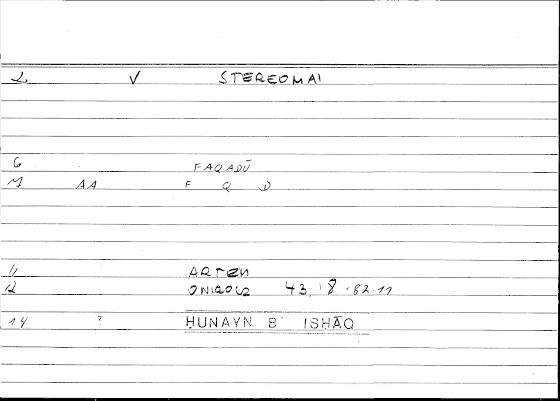 2 V STEREOMAI
6 FAQADŪ
M AA F Q D
11 ARTEM
12 ONIROCR 43, 8 - 82.11
14 ? HUNAYN B ISHĀQ